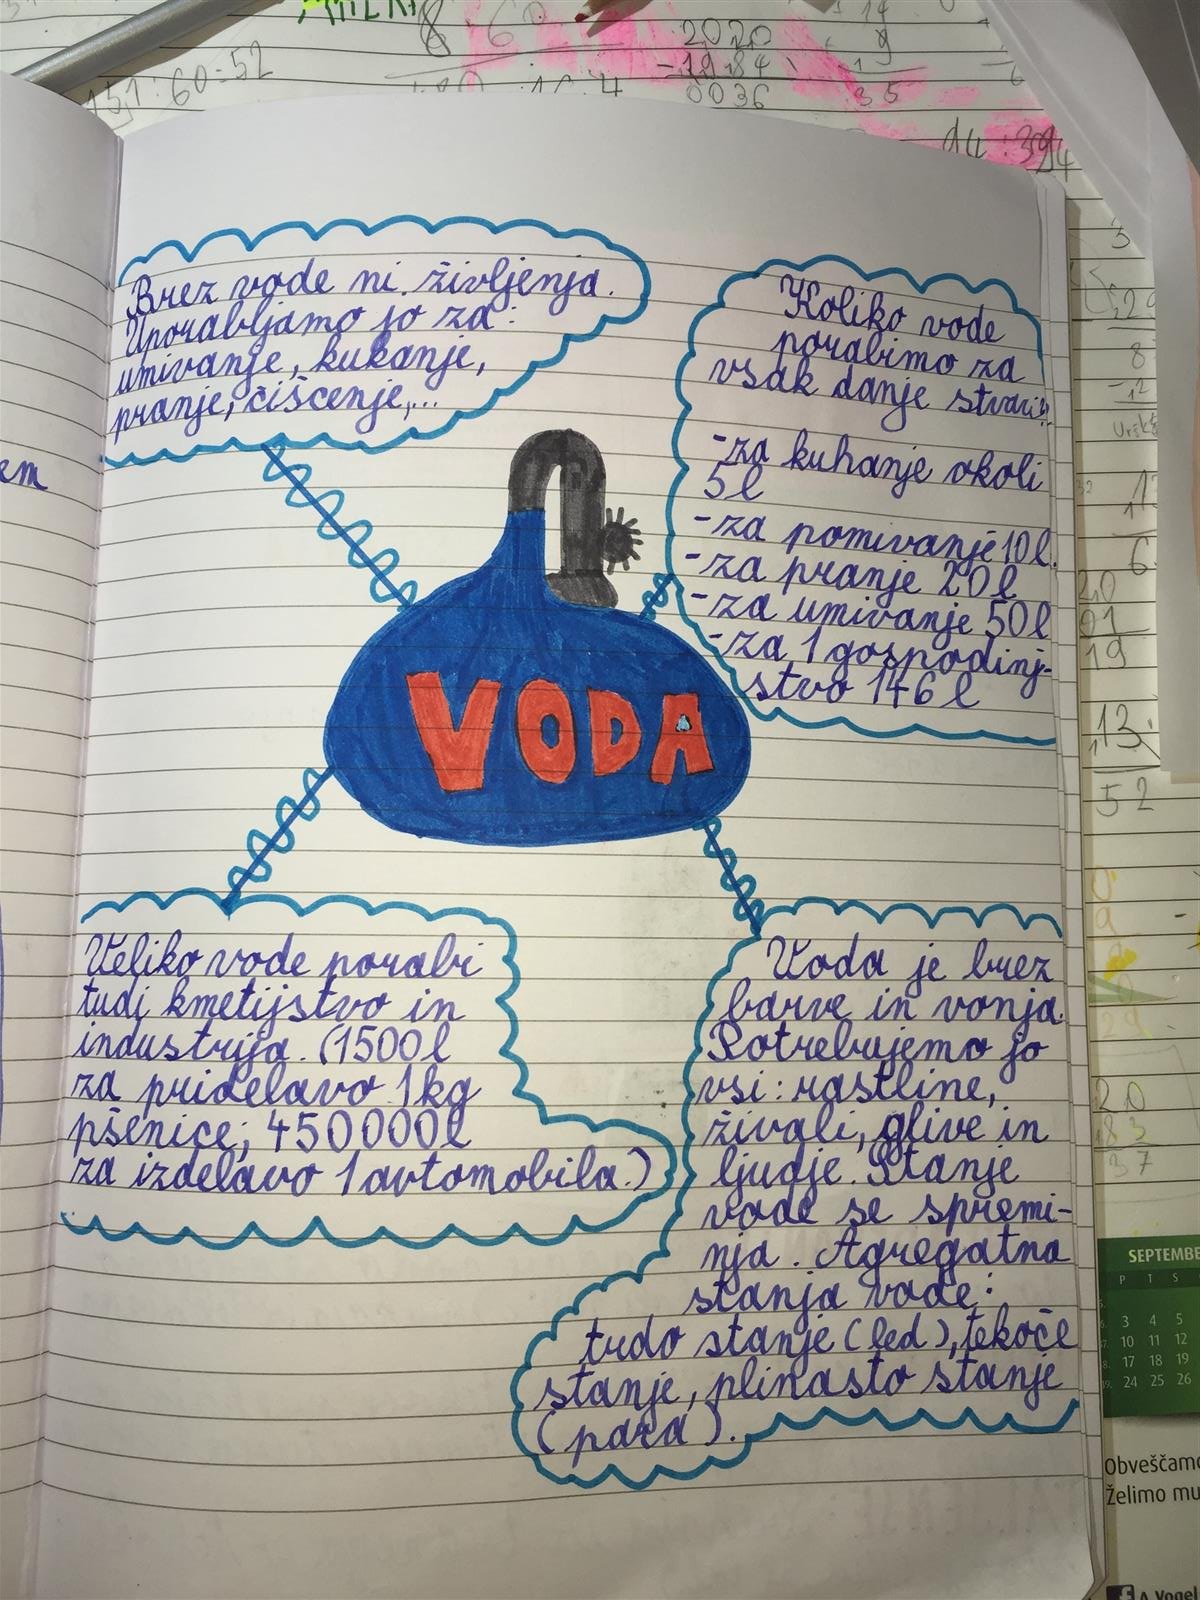 151:60=52
2020
-1984
0036
35
14:394
Brez vode ni življenja.
Uporabljamo jo za:
umivanje, kukanje,
pranje, čiščenje,...
Koliko vode
porabimo za
vsak danje stvari?
-za kuhanje okoli
5l
-za pomivanje 10l.
-za pranje 20l
-za umivanje 50l
-za 1 gospodinj-
stvo 146l
VODA
Veliko vode porabi
tudi kmetijstvo in
industrija. (1500l
za pridelavo 1kg
pšenice; 450000l
za izdelavo 1 avtomobila.)
Voda je brez
barve in vonja.
Potrebujemo jo
vsi: rastline,
živali, glive in
ljudje. Stanje
vode se spremi-
nja. Agregatna
stanja vode:
trdo stanje (led), tekoče
stanje, plinasto stanje
(para).
em
13
52
37
SEPTEMBE
P T S
3 4 5
10 11 12
17 18 19
24 25 26
Obveščamo
Želimo mu
A.Vogel